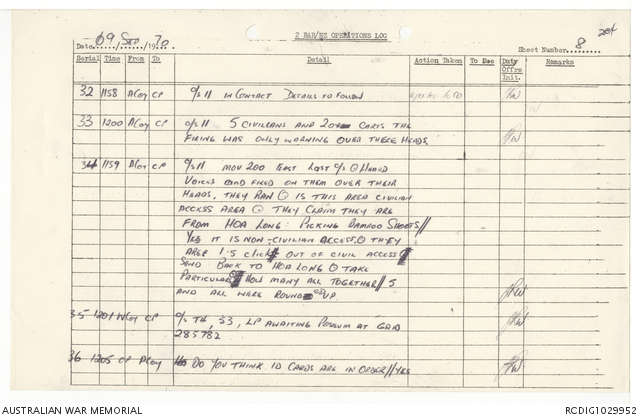 2 RAR/NZ OPERATIONS LOG
Date 09 / Sep / 1970
Sheet Number 8
Serial Time From To Detail Action Taken To Dec Duty Offrs Init. Remarks
32 1158 A Coy CP C/S 11 IN CONTACT DETAILS TO FOLLOW
33 1200 A Coy CP C/S 11 5 CIVILIANS AND 2 CARTS THE
FIRING WAS ONLY WARNING OVER THERE HEADS
34 1159 A Coy CP C/S 11 MOV 200 EAST LAST C/S HEARD
VOICES AND FIRED ON THEM OVER THEIR
HEADS, THEY RAN IS THIS AREA CIVILIAN
ACCESS AREA THEY CLAIM THEY ARE
FROM HOA LONG PICKING BAMBOO SHOOTS//
YES IT IS NON-CIVILIAN ACCESS THEY
ARE 1.5 CLICK OUT OF CIVIL ACCESS
SEND BACK TO HOA LONG TAKE
PARTICULARS HOW MANY ALL TOGETHER// 5
AND ALL WERE ROUND UP
35 1201 W Coy CP C/S 33, LP AWAITING POSSUM AT GRID
285782
36 1205 CP A Coy DO YOU THINK ID CARDS ARE IN ORDER//YES
AUSTRALIAN WAR MEMORIAL
RCDIG1029952